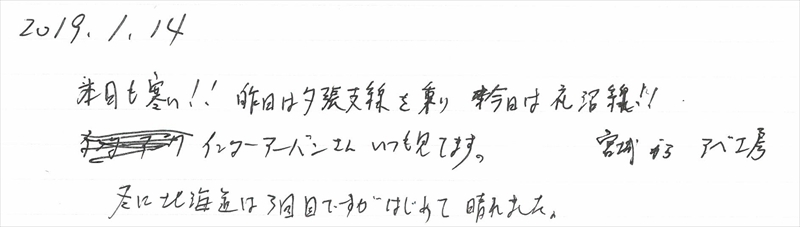 2019.1.14
本日も寒い!! 昨日は夕張支線を乗り 今日は札沼線!!
インターアーバンさん いつも見てます。 宮城 から アベ工房
冬に北海道は3回目ですがはじめて晴れました。